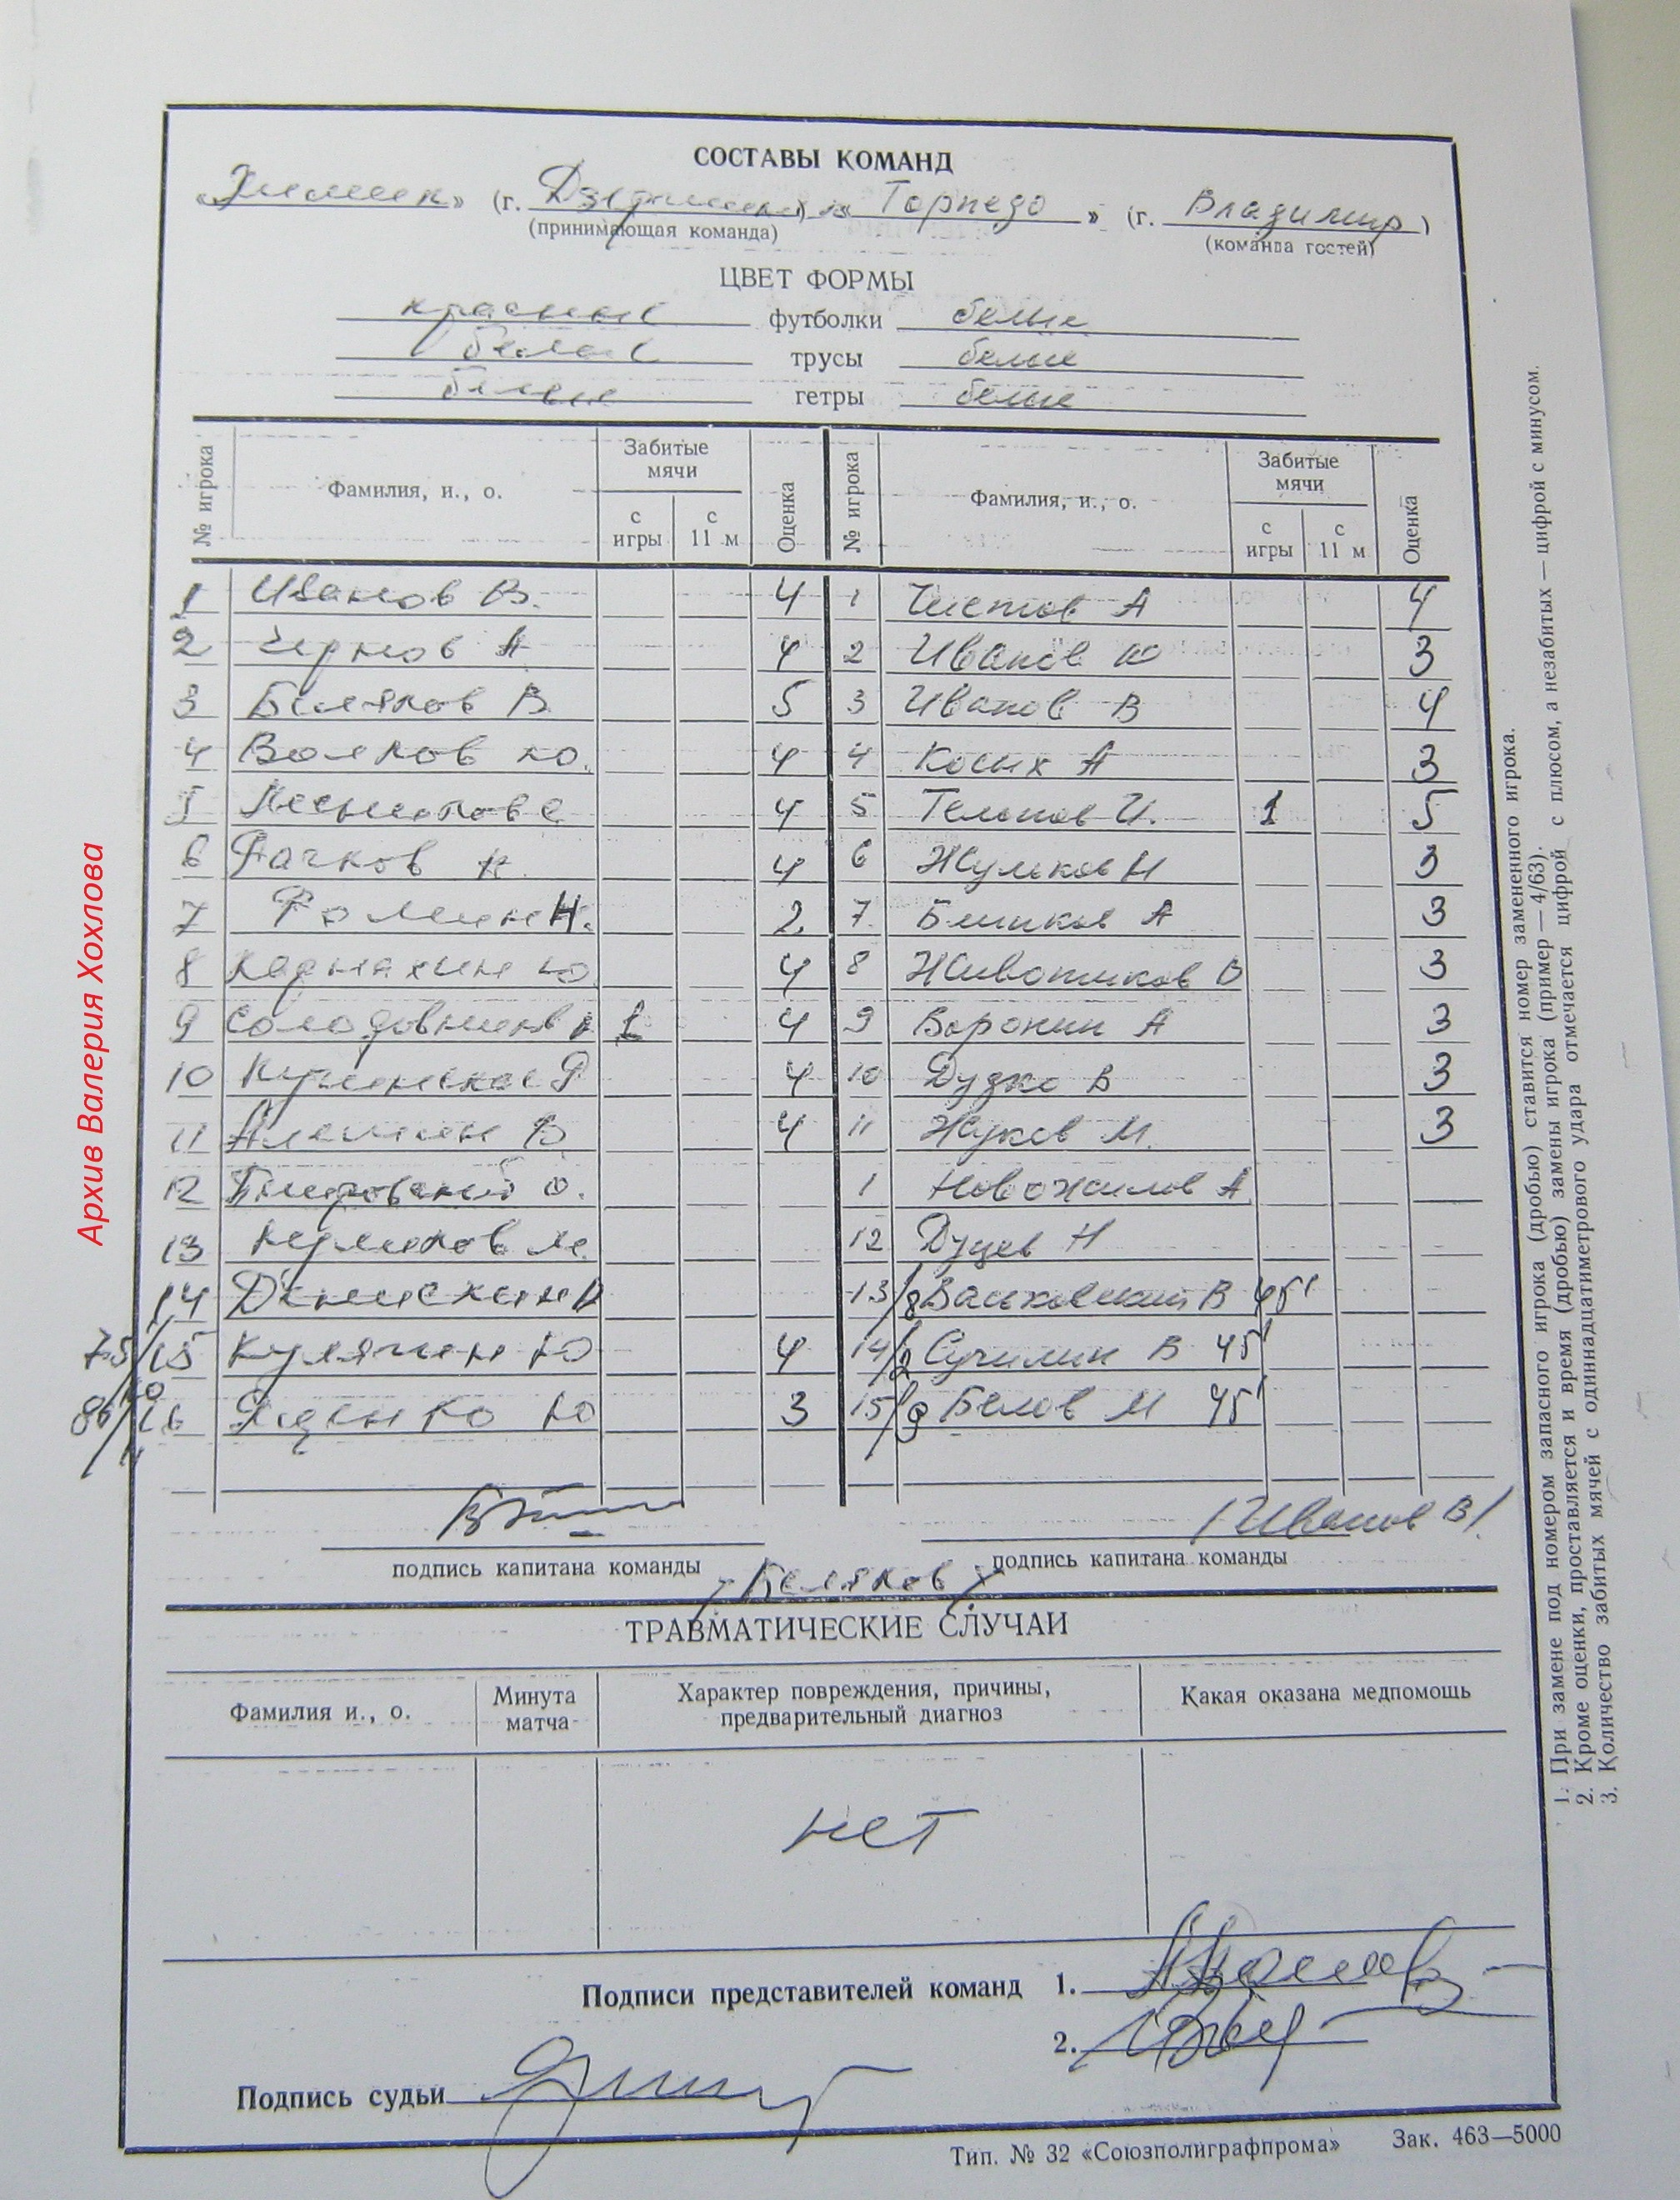 СОСТАВЫ КОМАНД
«Химик» (г. Дзержинск) «Торпедо» (г. Владимир)
(принимающая команда) (команда гостей)
ЦВЕТ ФОРМЫ
красные футболки белые
белые трусы белые
белые гетры белые
№ игрока Фамилия, и., о. Забитые мячи с игры с 11 м Оценка № игрока Фамилия, и., о. Забитые мячи с игры с 11 м Оценка
1 Иванов В. 4 1 Чистов А 4
2 Чернов А 4 2 Иванов Ю 3
3 Беляков В. 5 3 Иванов В 4
4 Волков Ю. 4 4 Косых А 3
5 4 5 Телепов И. 1 5
6 Рачков 4 6 Жульков Н 3
7 Фомин Н. 2 7. А 3
8 Карнахин Ю. 4 8 Животиков О 3
9 Солодовников 1 4 9 Воронин А 3
10 4 10 Дудко В 3
11 Алешин В 4 11 Жуков М. 3
12 О. 1 Новожилов А
13 м. 12 Дуцев Н
14 13/8 Васковский В 45'
75/15/10 Кулягин Ю 4 14/2 Сучилин В 45'
86/16/11 Яценко Ю 3 15/9 Белов М 45'
/Иванов В/.
подпись капитана команды подпись капитана команды
/Беляков/
ТРАВМАТИЧЕСКИЕ СЛУЧАИ
Фамилия и., о. Минута матча Характер повреждения, причины, предварительный диагноз Какая оказана медпомощь
нет
Подписи представителей команд 1.
2.
Подпись судьи
Тип. № 32 «Союзполиграфпрома» Зак. 463—5000
1. При замене под номером запасного игрока (дробью) ставится номер замененного игрока.
2. Кроме оценки, проставляется и время (дробью) замены игрока (пример — 4/63).
3. Количество забитых мячей с одиннадцатиметрового удара отмечается цифрой с плюсом, а незабитых — цифрой с минусом.
Архив Валерия Хохлова